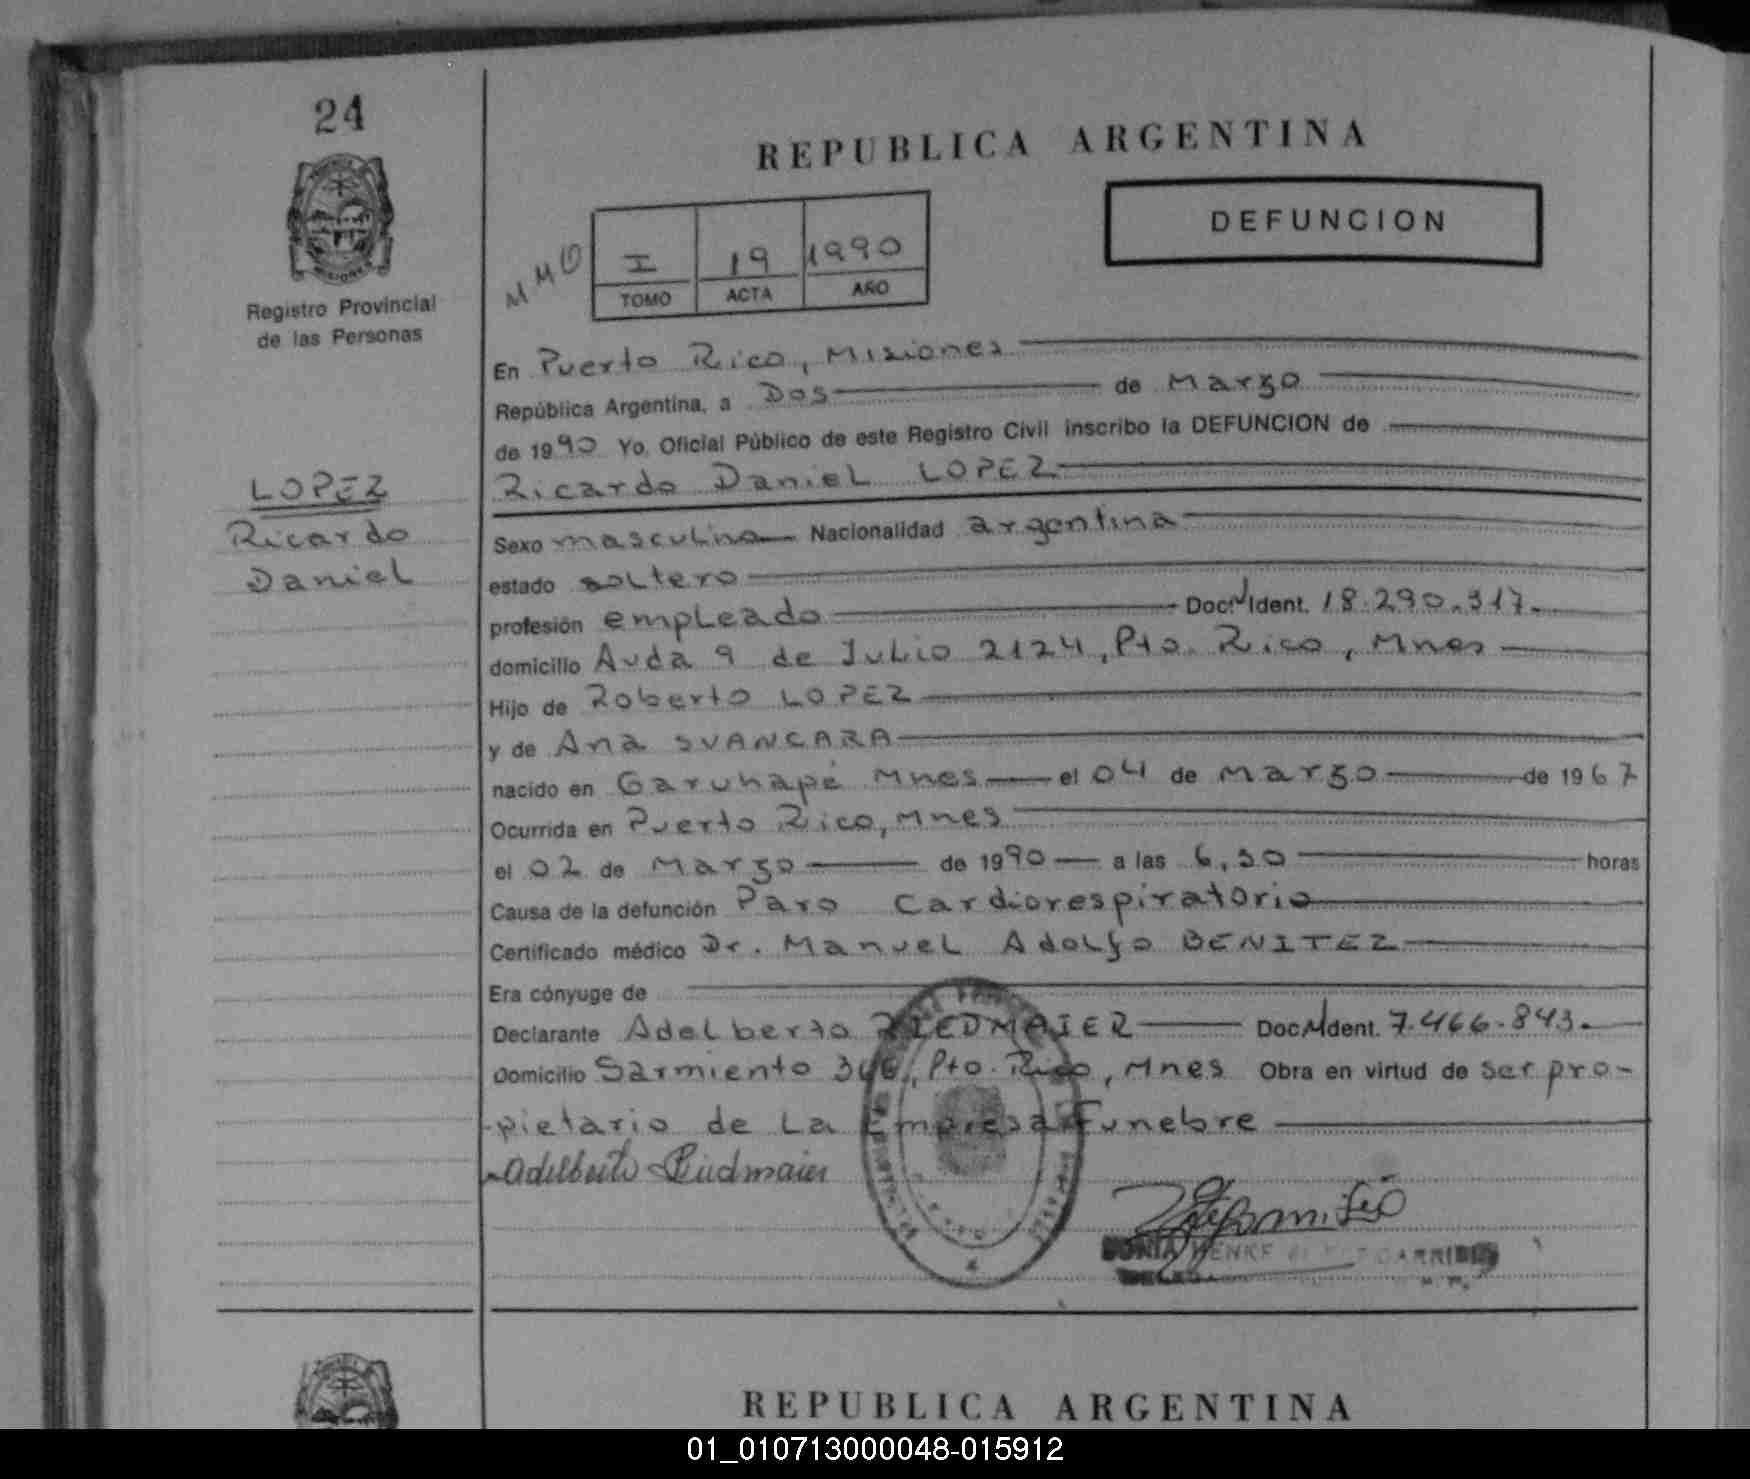 24
MISIONES
Registro Provincial
de las Personas
LOPEZ
Ricardo
Daniel
REPUBLICA ARGENTINA
DEFUNCION
I 19 1990
TOMO ACTA AÑO
En Puerto Rico, Misiones
República Argentina, a Dos de Marzo
de 1990 Yo, Oficial Público de este Registro Civil inscribo la DEFUNCION de
Ricardo Daniel LOPEZ
Sexo masculino Nacionalidad argentina
estado soltero
profesión empleado Doc. Ident. 18.290.317.
domicilio Avda 9 de Julio 2124, Pto. Rico, Mnes
Hijo de Roberto LOPEZ
y de Ana SVANCARA
nacido en Garuhapé Mnes el 04 de Marzo de 1967
Ocurrida en Puerto Rico, Mnes
el 02 de Marzo de 1990 a las 6,30 horas
Causa de la defunción Paro Cardiorespiratorio
Certificado médico Dr. Manuel Adolfo BENITEZ
Era cónyuge de
Declarante Adelberto RIEDMAIER Doc. Ident. 7.466.843.
Domicilio Sarmiento Pto. Rico, Mnes Obra en virtud de ser pro-
pietario de La Empresa Funebre
Adelberto Riedmaier
SONIA HENKE
REPUBLICA ARGENTINA
01_010713000048-015912